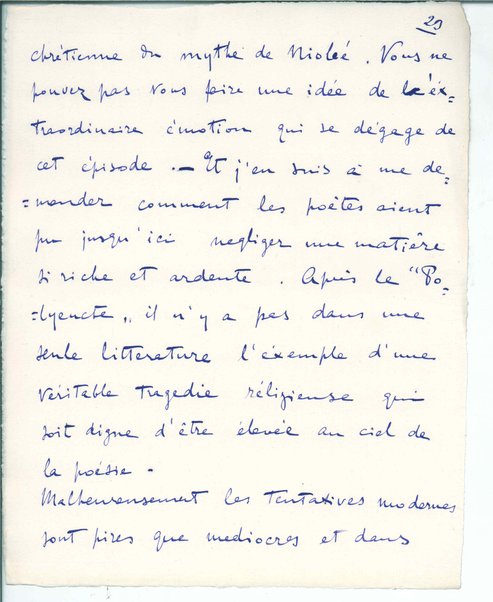 29
chrétienne du mythe de Niobé. Vous ne
pouvez pas vous faire une idée de l'éx-
traordinaire émotion qui se dégage de
cet épisode. — Et j'en suis à me de-
=mander comment les poètes aient
pu jusqu'ici negliger une matière
si riche et ardente. Après le "Po-
=lyeucte" il n'y a pas dans une
seule litterature l'éxemple d'une
véritable tragedie réligieuse qui
soit digne d'être élevée au ciel de
la poésie -
Malheureusement les tentatives modernes
sont pires que mediocres et dans